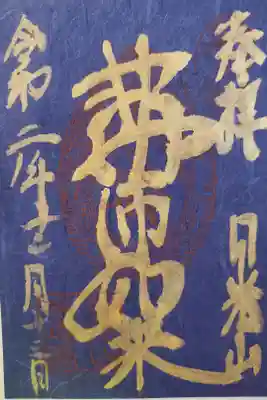 奉拝
日光山
薬師如来
令和二年十一月十二日